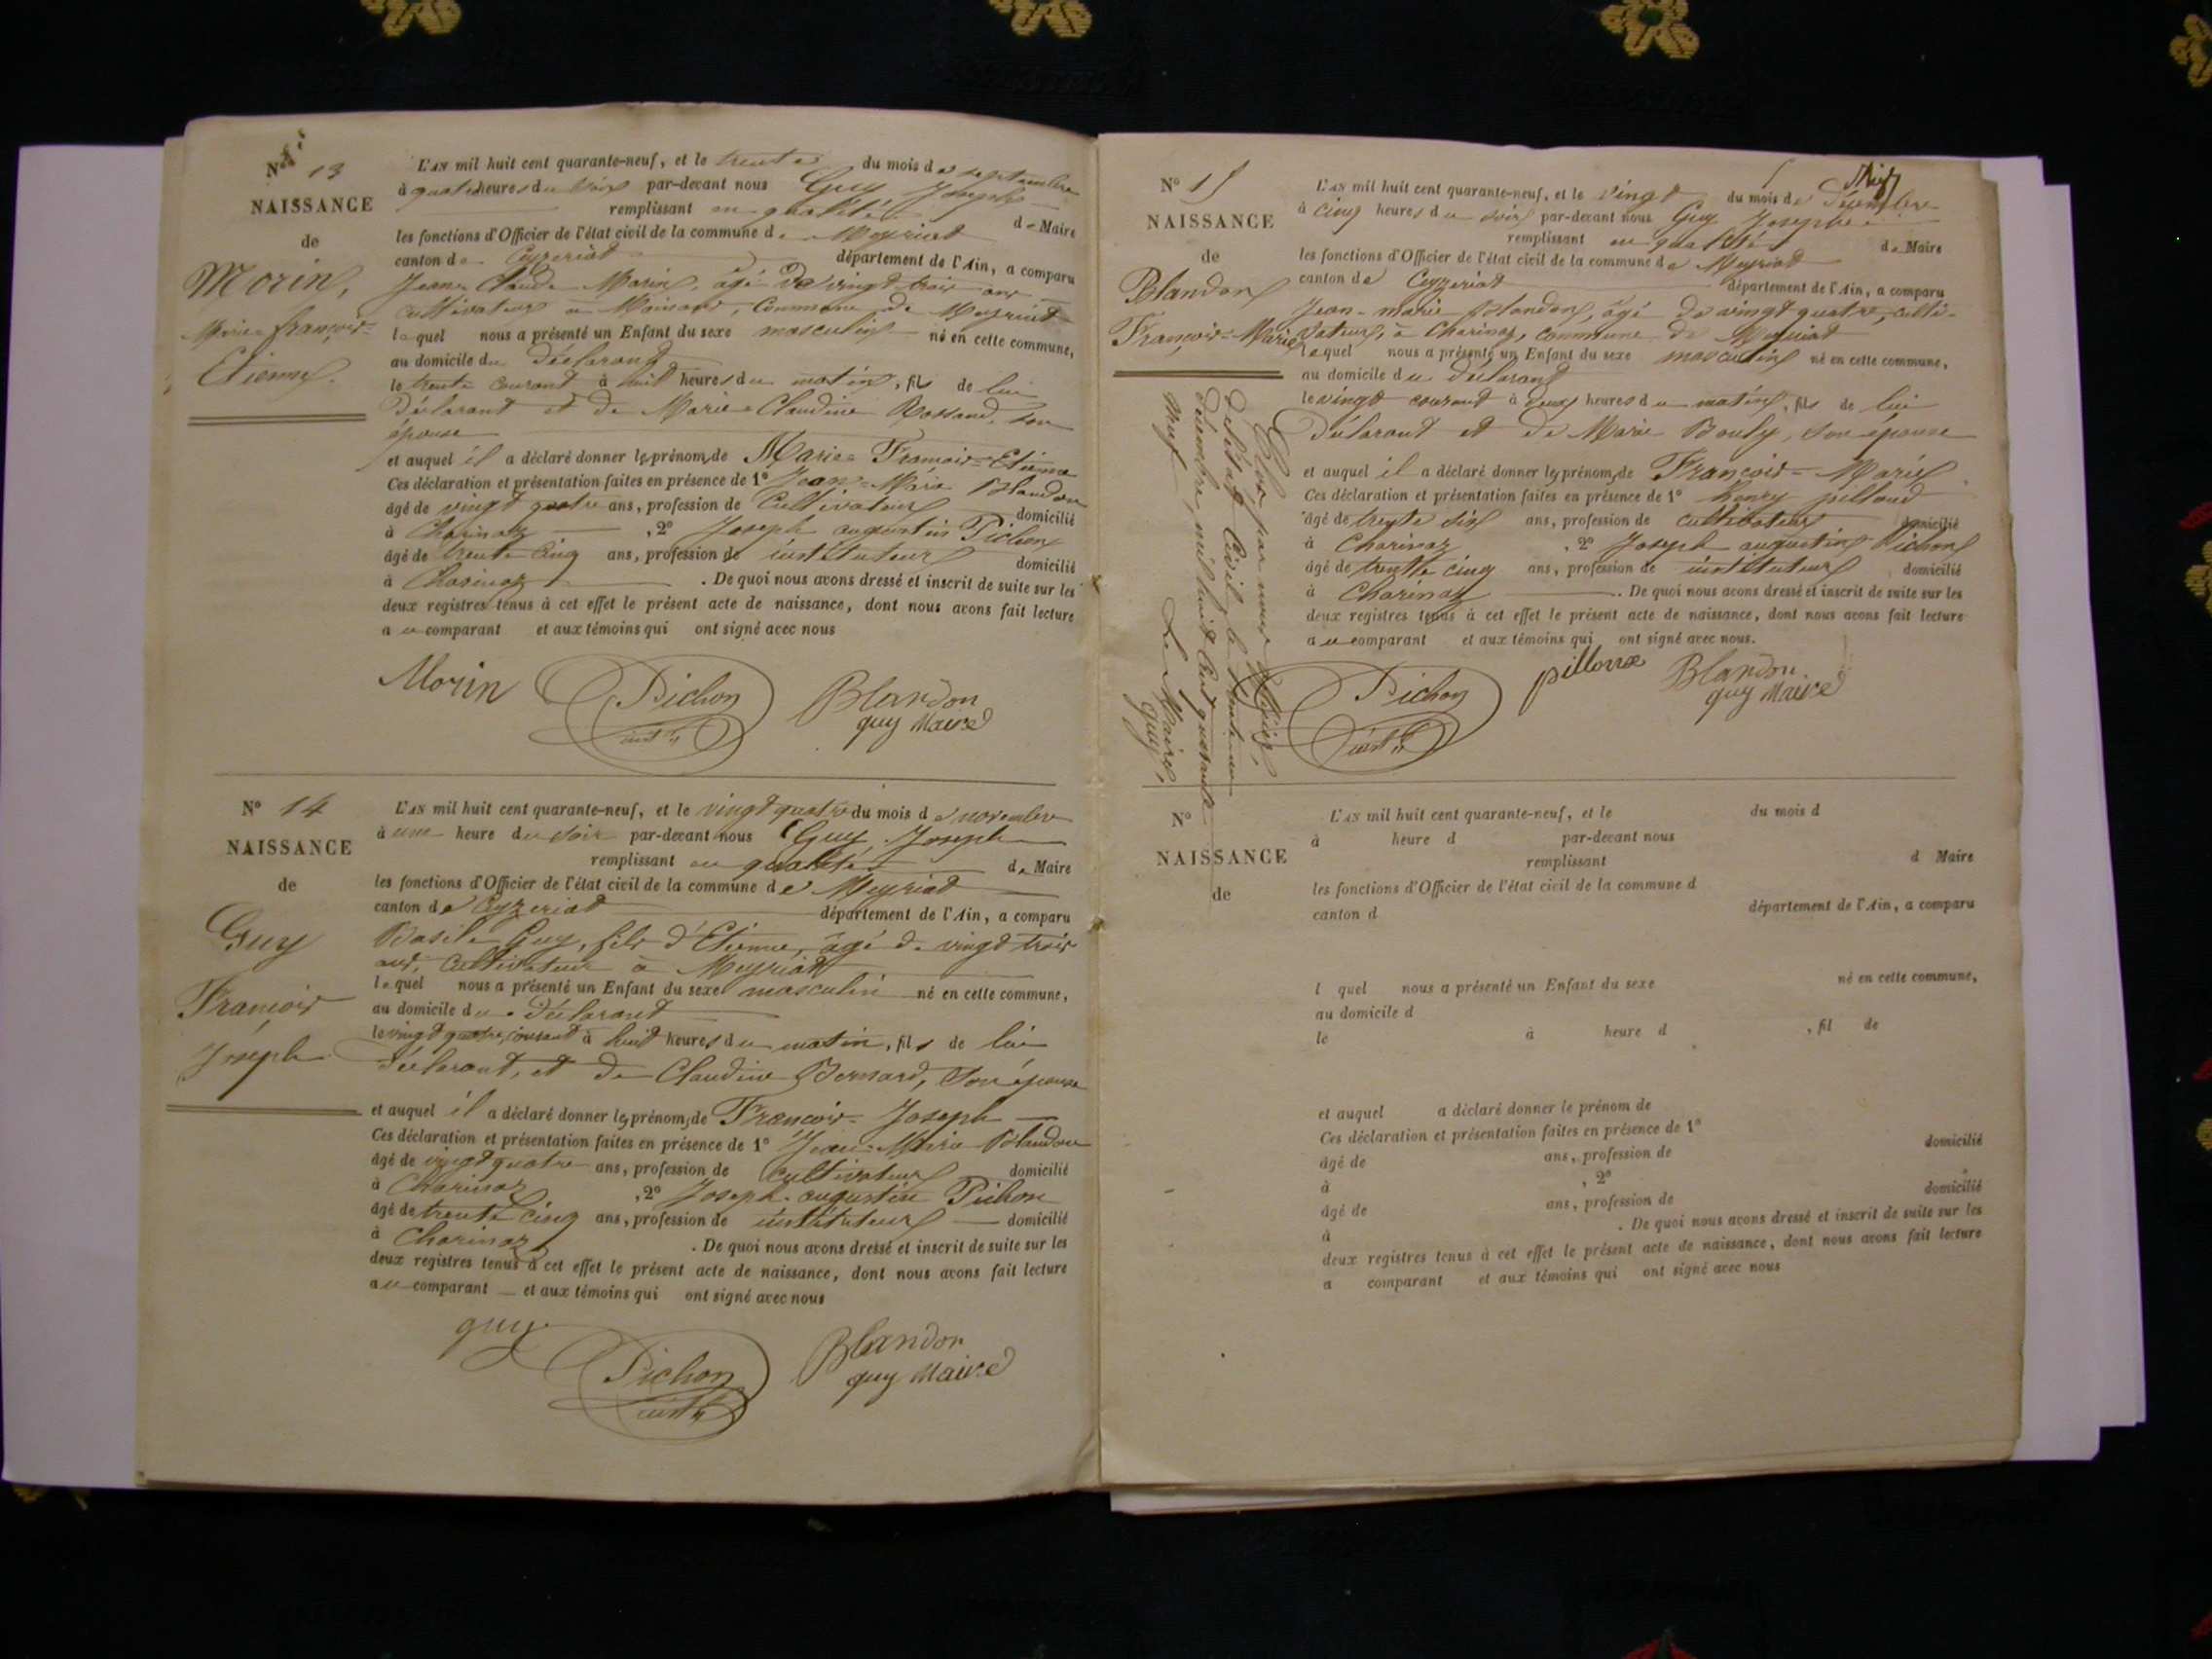 N° 13
NAISSANCE
de
Morin,
Marie françois=
Etienne.
L'AN mil huit cent quarante-neuf, et le trente du mois de septembre
à quatre heures du soir par-devant nous Guy Joseph
remplissant en qualité de Maire
les fonctions d'Officier de l'état civil de la commune de Meyriat
canton de Ceyzeriat département de l'Ain, a comparu
Jean Claude Morin, âgé de vingt trois ans
cultivateur à commune de Meyriat
lequel nous a présenté un Enfant du sexe masculin né en cette commune,
au domicile du déclarant
le trente courant à huit heures du matin, fils de lui
Déclarant et de Marie Claudine son
épouse
et auquel il a déclaré donner les prénoms de Marie François=Etienne
Ces déclaration et présentation faites en présence de 1° Jean-Marie Blandon
âgé de vingt quatre ans, profession de Cultivateur domicilié
à Charinaz, 2° Joseph augustin Pichon
âgé de trente cinq ans, profession de instituteur domicilié
à Charinaz . De quoi nous avons dressé et inscrit de suite sur les
deux registres tenus à cet effet le présent acte de naissance, dont nous avons fait lecture
au comparant et aux témoins qui ont signé avec nous
Morin Pichon Blandon
guy Maire
N° 14
NAISSANCE
de
Guy
François
Joseph
L'AN mil huit cent quarante-neuf, et le vingt quatre du mois de novembre
à une heure du soir par-devant nous Guy, Joseph
remplissant en qualité de Maire
les fonctions d'Officier de l'état civil de la commune de Meyriat
canton de Ceyzeriat département de l'Ain, a comparu
Basile Guy, fils d'Etienne, âgé de vingt trois
ans, cultivateur à Meyriat
lequel nous a présenté un Enfant du sexe masculin né en cette commune,
au domicile du Déclarant
le vingt quatre courant à huit heures du matin, fils de lui
déclarant, et de Claudine Bernard, son épouse
et auquel il a déclaré donner les prénoms de François= Joseph
Ces déclaration et présentation faites en présence de 1° Jean-Marie Blandon
âgé de vingt quatre ans, profession de cultivateur domicilié
à Charinaz, 2° Joseph augustin Pichon
âgé de trente cinq ans, profession de instituteur domicilié
à Charinaz . De quoi nous avons dressé et inscrit de suite sur les
deux registres tenus à cet effet le présent acte de naissance, dont nous avons fait lecture
au comparant et aux témoins qui ont signé avec nous
guy Pichon Blandon
guy Maire
N° 15
NAISSANCE
de
Blandon
François=Marie
L'AN mil huit cent quarante-neuf, et le vingt du mois de Décembre
à cinq heures du soir par-devant nous Guy Joseph
remplissant en qualité de Maire
les fonctions d'Officier de l'état civil de la commune de Meyriat
canton de Ceyzeriat département de l'Ain, a comparu
Jean-marie Blandon, âgé de vingt quatre, culti-
vateur, à Charinaz, commune de Meyriat
lequel nous a présenté un Enfant du sexe masculin né en cette commune,
au domicile du déclarant
le vingt courant à deux heures du matin, fils de lui
Déclarant et de Marie Bouly, son épouse
et auquel il a déclaré donner les prénoms de François=Marie
Ces déclaration et présentation faites en présence de 1° henry pilloud
âgé de trente six ans, profession de cultivateur domicilié
à Charinaz, 2° Joseph augustin Pichon
âgé de trente cinq ans, profession de instituteur domicilié
à Charinaz . De quoi nous avons dressé et inscrit de suite sur les
deux registres tenus à cet effet le présent acte de naissance, dont nous avons fait lecture
au comparant et aux témoins qui ont signé avec nous.
Pichon Blandon
guy Maire
Clos par nous
de l'état Civil le trente un
décembre mil huit Cent quarante
neuf Le Maire,
Guy,
N°
NAISSANCE
de
L'AN mil huit cent quarante-neuf, et le du mois d
à heure d par-devant nous
remplissant d Maire
les fonctions d'Officier de l'état civil de la commune d
canton d département de l'Ain, a comparu
l quel nous a présenté un Enfant du sexe né en cette commune,
au domicile d
le à heure d , fil de
et auquel a déclaré donner le prénom de
Ces déclaration et présentation faites en présence de 1°
âgé de ans, profession de domicilié
à , 2°
âgé de ans, profession de domicilié
à . De quoi nous avons dressé et inscrit de suite sur les
deux registres tenus à cet effet le présent acte de naissance, dont nous avons fait lecture
a comparant et aux témoins qui ont signé avec nous